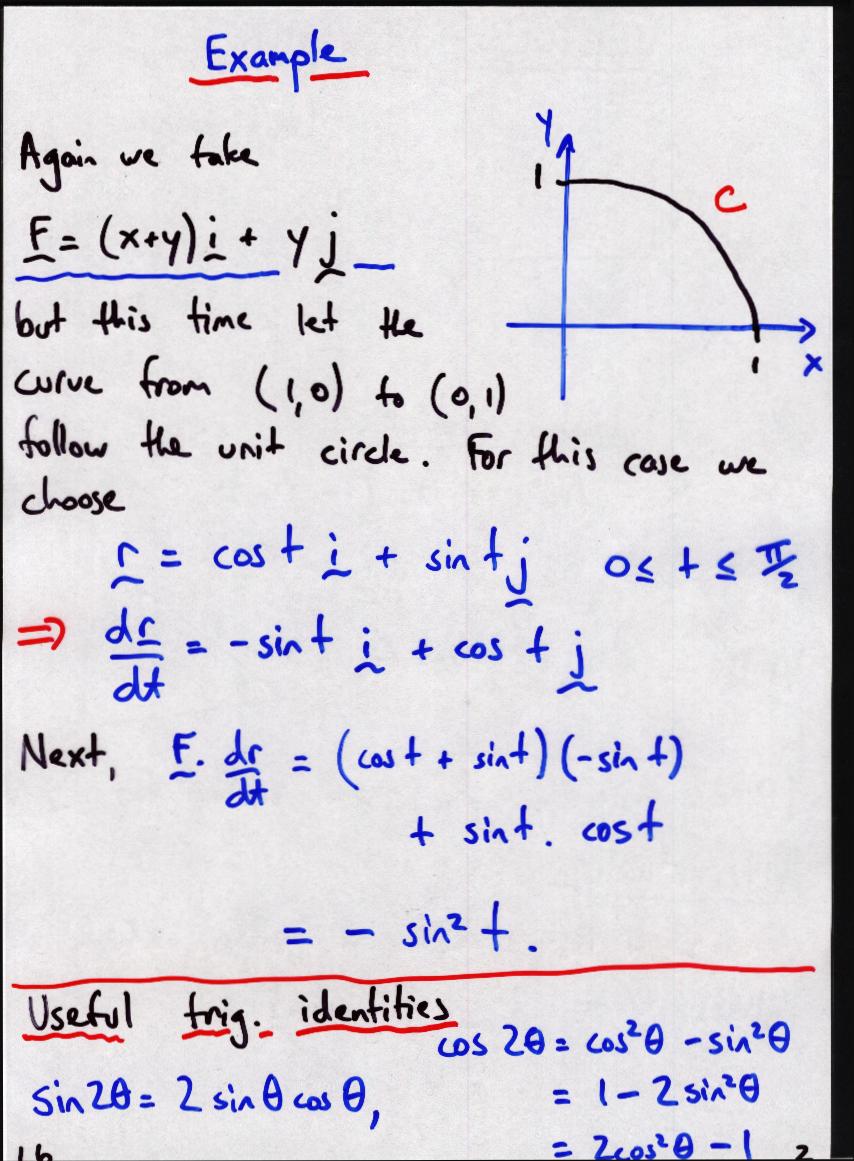 Example
Again we take
F = (x+y) i + y j
but this time let the
curve from (1,0) to (0,1)
follow the unit circle. For this case we
choose
r = cos t i + sin t j 0 ≤ t ≤ π/2
⇒ dr/dt = -sin t i + cos t j
Next, F. dr/dt = (cos t + sin t)(-sin t)
+ sin t. cos t
= - sin² t.
Useful trig. identities
sin 2θ = 2 sin θ cos θ,
cos 2θ = cos²θ - sin²θ
= 1 - 2 sin²θ
= 2cos²θ - 1
Y
1
C
1
X